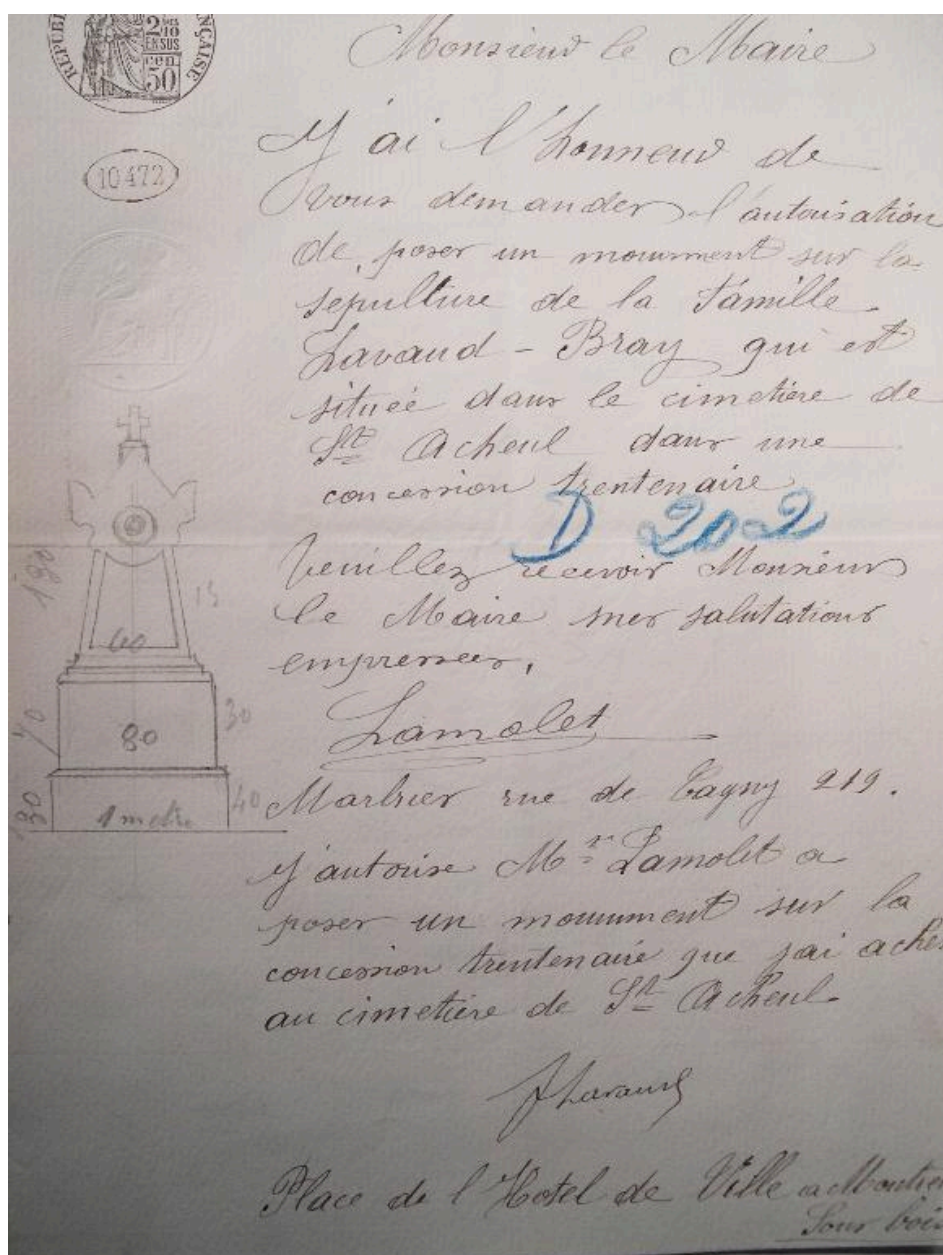 RÉPUBLIQUE FRANÇAISE
2/10
EN SUS
cen.
50
10472
Monsieur le Maire
J'ai l'honneur de
vous demander l'autorisation
de poser un monument sur la
sépulture de la Famille
Lavaud - Bray qui est
située dans le cimetière de
St Acheul dans une
concession trentenaire
D 202
Veuillez recevoir Monsieur
le Maire mes salutations
empressées,
Lamolet
Marbrier rue de Cagny 219.
J'autorise Mr Lamolet a
poser un monument sur la
concession trentenaire que j'ai
au cimetière de St Acheul
JLavaud
Place de l'Hotel de Ville a
Sous bois
180
15
60
70
30
80
30
40
1 metre